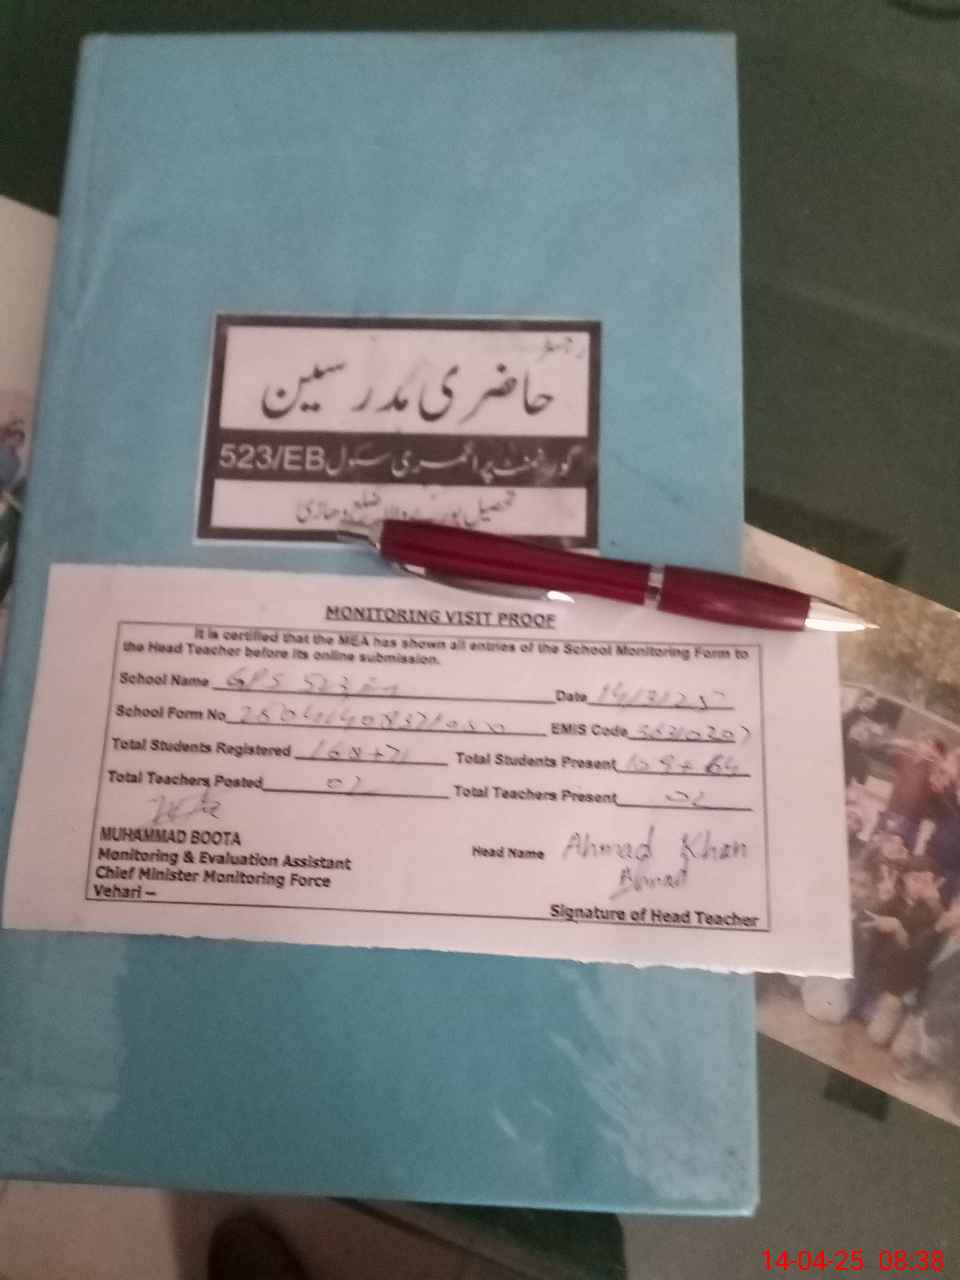 رجسٹر
حاضری مدرسین
گورنمنٹ پرائمری سکول 523/EB
تحصیل بورے والا ضلع وھاڑی
MONITORING VISIT PROOF
It is certified that the MEA has shown all entries of the School Monitoring Form to
the Head Teacher before its online submission.
School Name GPS 523 Date
School Form No EMIS Code
Total Students Registered 168+71 Total Students Present
Total Teachers Posted 02 Total Teachers Present 02
MUHAMMAD BOOTA
Monitoring & Evaluation Assistant Head Name Ahmad Khan
Chief Minister Monitoring Force Ahmad
Vehari – Signature of Head Teacher
14-04-25 08:38